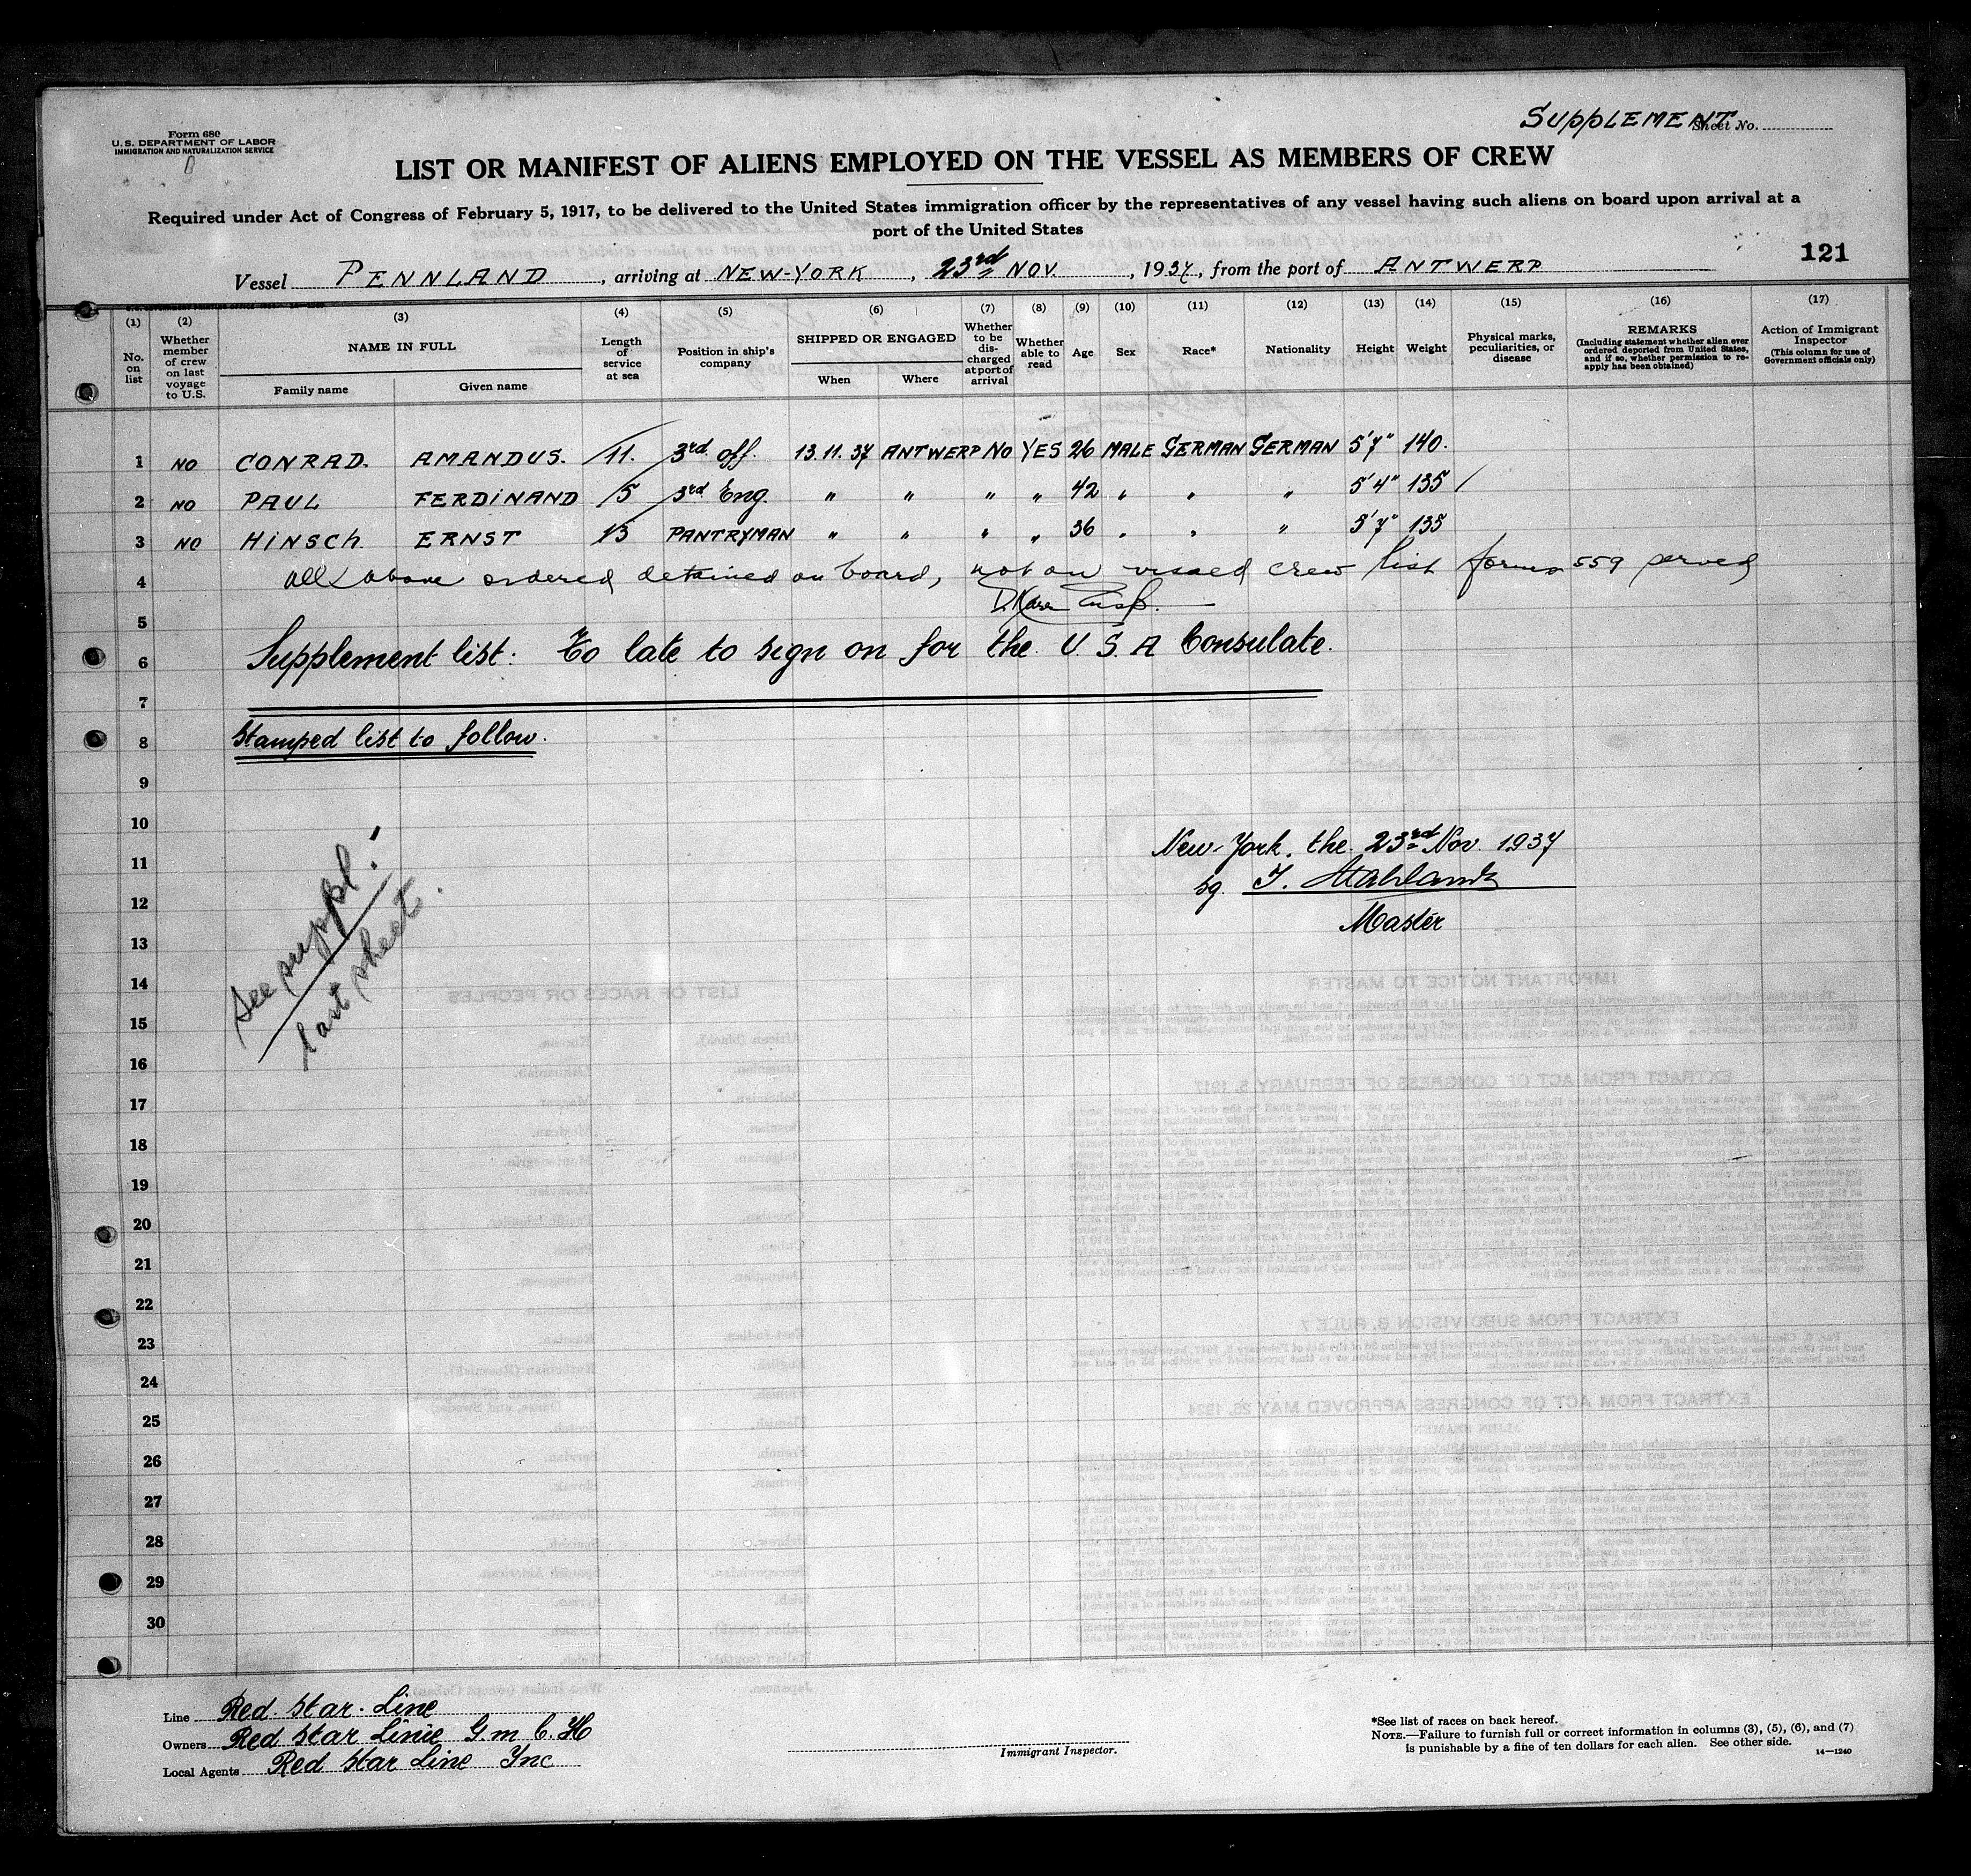 Form 680
U. S. DEPARTMENT OF LABOR
IMMIGRATION AND NATURALIZATION SERVICE
SUPPLEMENT
Sheet No.
LIST OR MANIFEST OF ALIENS EMPLOYED ON THE VESSEL AS MEMBERS OF CREW
Required under Act of Congress of February 5, 1917, to be delivered to the United States immigration officer by the representatives of any vessel having such aliens on board upon arrival at a
port of the United States
121
Vessel PENNLAND, arriving at NEW-YORK, 23rd NOV., 1937, from the port of ANTWERP
(1) No. on list
(2) Whether member of crew on last voyage to U.S.
(3) NAME IN FULL
Family name Given name
(4) Length of service at sea
(5) Position in ship's company
(6) SHIPPED OR ENGAGED
When Where
(7) Whether to be discharged at port of arrival
(8) Whether able to read
(9) Age
(10) Sex
(11) Race*
(12) Nationality
(13) Height
(14) Weight
(15) Physical marks, peculiarities, or disease
(16) REMARKS
(Including statement whether alien ever ordered deported from United States, and if so, whether permission to re-apply has been obtained)
(17) Action of Immigrant Inspector
(This column for use of Government officials only)
1 NO CONRAD. AMANDUS. 11. 3rd off. 13.11.37 ANTWERP NO YES 26 MALE GERMAN GERMAN 5'7" 140.
2 NO PAUL FERDINAND 5 3rd Eng. " " " " 42 " " " 5'4" 135 /
3 NO HINSCH. ERNST 13 PANTRYMAN " " " " 36 " " " 5'7" 135
4 all above ordered detained on board, not on visaed crew list forms 559 served
5
6 Supplement list: To late to sign on for the U.S.A Consulate.
7
8 Stamped list to follow.
9
10
New-York. the 23rd Nov. 1937
11
sg.
12
Master
13
See suppl.
last sheet.
14
15
16
17
18
19
20
21
22
23
24
25
26
27
28
29
30
Line Red. Star. Line
Owners Red Star Linie G m b. H
Local Agents Red Star Line Inc
Immigrant Inspector.
*See list of races on back hereof.
NOTE.—Failure to furnish full or correct information in columns (3), (5), (6), and (7)
is punishable by a fine of ten dollars for each alien. See other side.
14—1240